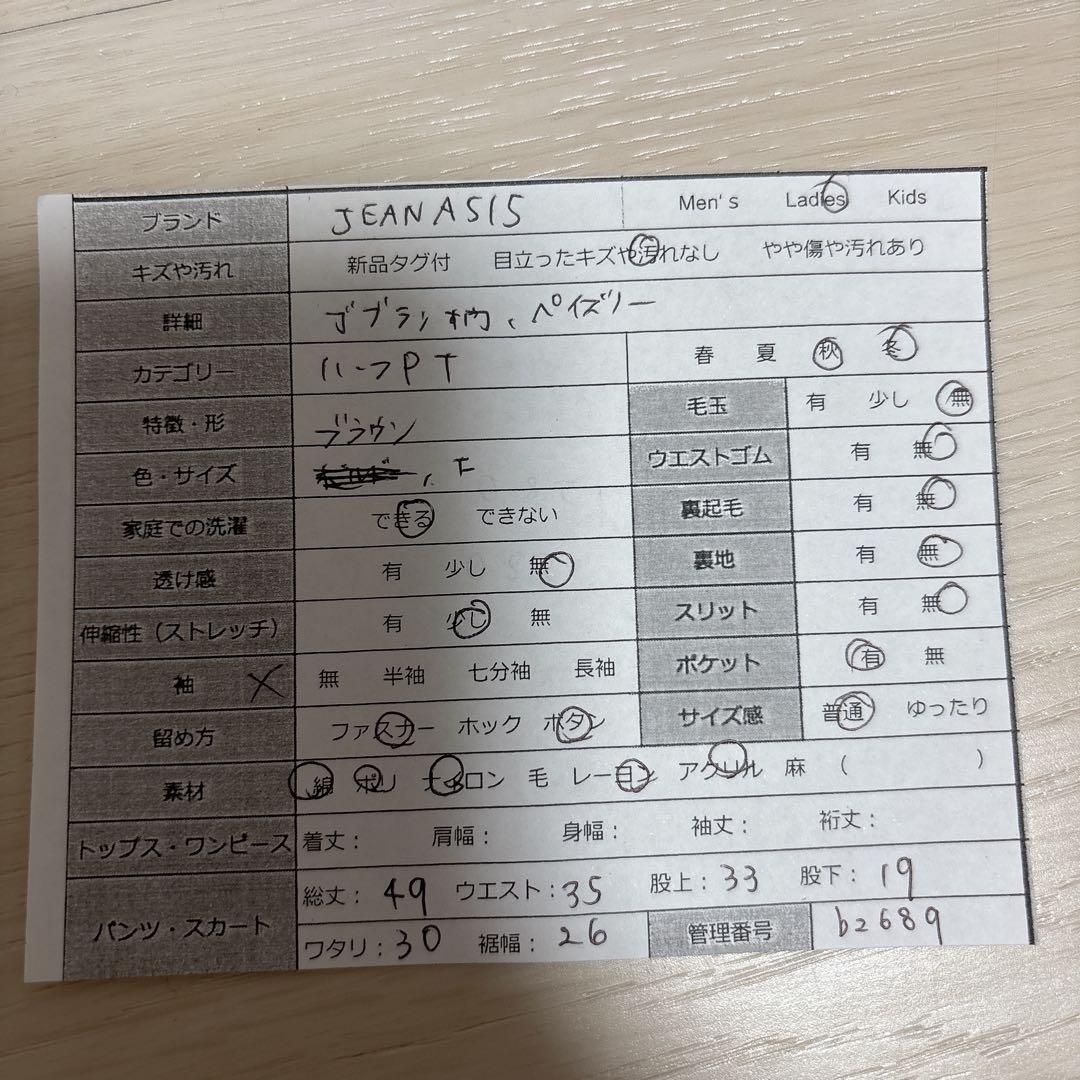 ブランド JEANASIS Men's Ladies Kids
キズや汚れ 新品タグ付 目立ったキズや汚れなし やや傷や汚れあり
詳細 ゴブラン柄、ペイズリー
カテゴリー ハーフPT 春 夏 秋 冬
特徴・形 毛玉 有 少し 無
ブラウン
色・サイズ 、F ウエストゴム 有 無
家庭での洗濯 できる できない 裏起毛 有 無
透け感 有 少し 無 裏地 有 無
伸縮性(ストレッチ) 有 少し 無 スリット 有 無
袖 × 無 半袖 七分袖 長袖 ポケット 有 無
留め方 ファスナー ホック ボタン サイズ感 普通 ゆったり
素材 綿 ポリ ナイロン 毛 レーヨン アクリル 麻 ( )
トップス・ワンピース 着丈: 肩幅: 身幅: 袖丈: 裄丈:
パンツ・スカート 総丈: 49 ウエスト: 35 股上: 33 股下: 19
ワタリ: 30 裾幅: 26 管理番号 b2689